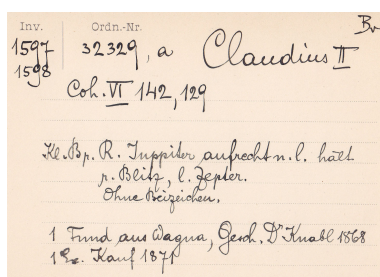 Br
Inv. Ordn.-Nr.
1597 32329, a Claudius II
1598
Coh. VI 142, 129
Kl. Br. R. Juppiter aufrecht n. l. hält
r. Blitz, l. Zepter.
Ohne Beizeichen.
1 Fund aus Wagna, Gesch. Dr Knabl 1868
1 Ex. Kauf 1871